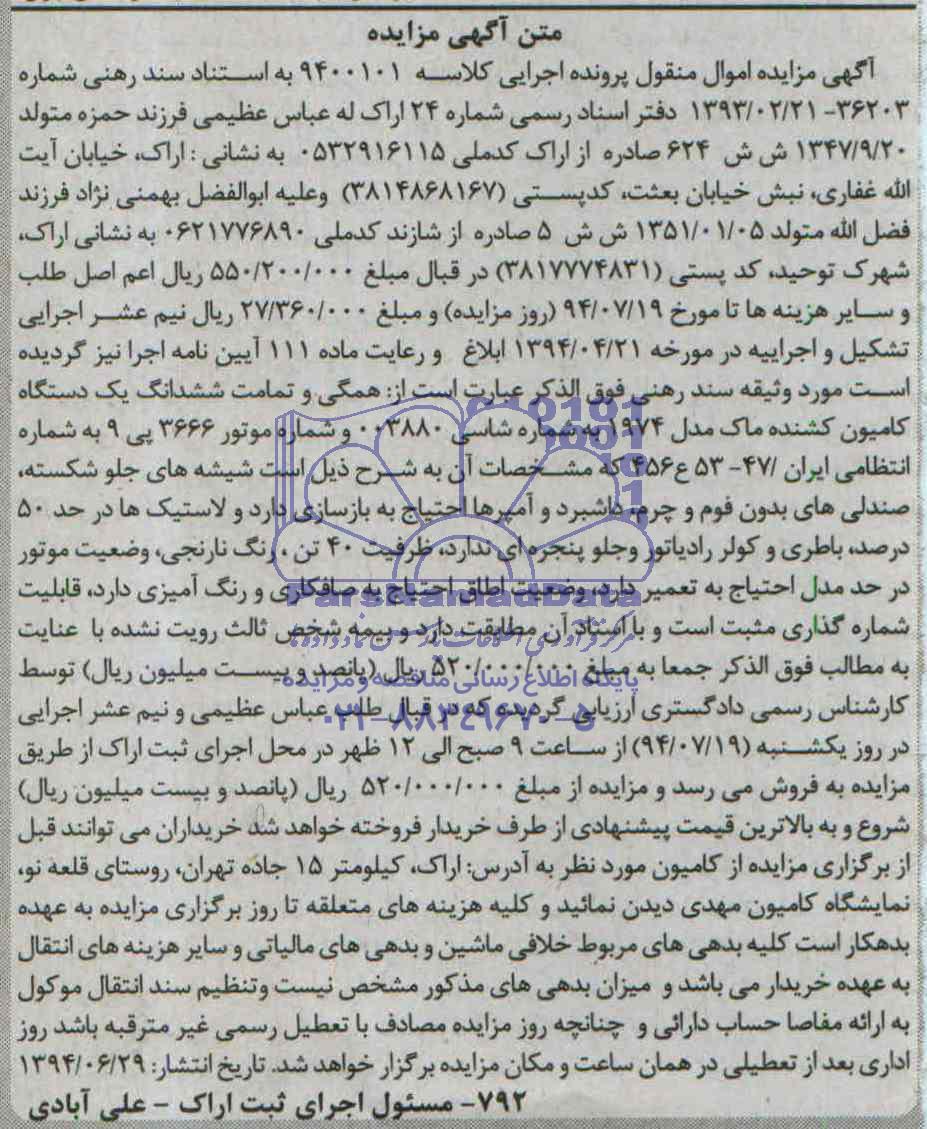 متن آگهی مزایده
آگهی مزایده اموال منقول پرونده اجرایی کلاسه ۹۴۰۰۱۰۱ به استناد سند رهنی شماره
۳۶۲۰۳- ۱۳۹۳/۰۲/۲۱ دفتر اسناد رسمی شماره ۲۴ اراک له عباس عظیمی فرزند حمزه متولد
۱۳۴۷/۹/۲۰ ش ش ۶۲۴ صادره از اراک کدملی ۰۵۳۲۹۱۶۱۱۵ به نشانی : اراک، خیابان آیت
الله غفاری، نبش خیابان بعثت، کدپستی (۳۸۱۴۸۶۸۱۶۷) وعلیه ابوالفضل بهمنی نژاد فرزند
فضل الله متولد ۱۳۵۱/۰۱/۰۵ ش ش ۵ صادره از شازند کدملی ۰۶۲۱۷۷۶۸۹۰ به نشانی اراک،
شهرک توحید، کد پستی (۳۸۱۷۷۷۴۸۳۱) در قبال مبلغ ۵۵۰/۲۰۰/۰۰۰ ریال اعم اصل طلب
و سایر هزینه ها تا مورخ ۹۴/۰۷/۱۹ (روز مزایده) و مبلغ ۲۷/۳۶۰/۰۰۰ ریال نیم عشر اجرایی
تشکیل و اجراییه در مورخه ۱۳۹۴/۰۴/۲۱ ابلاغ و رعایت ماده ۱۱۱ آیین نامه اجرا نیز گردیده
است مورد وثیقه سند رهنی فوق الذکر عبارت است از: همگی و تمامت ششدانگ یک دستگاه
کامیون کشنده ماک مدل ۱۹۷۴ به شماره شاسی ۰۰۳۸۸۰ و شماره موتور ۳۶۶۶ پی ۹ به شماره
انتظامی ایران /۴۷- ۵۳ ع۴۵۶ که مشخصات آن به شرح ذیل است شیشه های جلو شکسته،
صندلی های بدون فوم و چرم، داشبرد و آمپرها احتیاج به بازسازی دارد و لاستیک ها در حد ۵۰
درصد، باطری و کولر رادیاتور وجلو پنجره ای ندارد، ظرفیت ۴۰ تن ، رنگ نارنجی، وضعیت موتور
در حد مدل احتیاج به تعمیر دارد، وضعیت اطاق احتیاج به صافکاری و رنگ آمیزی دارد، قابلیت
شماره گذاری مثبت است و با اسناد آن مطابقت دارد و بیمه شخص ثالث رویت نشده با عنایت
به مطالب فوق الذکر جمعا به مبلغ ۵۲۰/۰۰۰/۰۰۰ ریال (پانصد و بیست میلیون ریال) توسط
کارشناس رسمی دادگستری ارزیابی گردیده که در قبال طلب عباس عظیمی و نیم عشر اجرایی
در روز یکشنبه (۹۴/۰۷/۱۹) از ساعت ۹ صبح الی ۱۲ ظهر در محل اجرای ثبت اراک از طریق
مزایده به فروش می رسد و مزایده از مبلغ ۵۲۰/۰۰۰/۰۰۰ ریال (پانصد و بیست میلیون ریال)
شروع و به بالاترین قیمت پیشنهادی از طرف خریدار فروخته خواهد شد خریداران می توانند قبل
از برگزاری مزایده از کامیون مورد نظر به آدرس: اراک، کیلومتر ۱۵ جاده تهران، روستای قلعه نو،
نمایشگاه کامیون مهدی دیدن نمائید و کلیه هزینه های متعلقه تا روز برگزاری مزایده به عهده
بدهکار است کلیه بدهی های مربوط خلافی ماشین و بدهی های مالیاتی و سایر هزینه های انتقال
به عهده خریدار می باشد و میزان بدهی های مذکور مشخص نیست وتنظیم سند انتقال موکول
به ارائه مفاصا حساب دارائی و چنانچه روز مزایده مصادف با تعطیل رسمی غیر مترقبه باشد روز
اداری بعد از تعطیلی در همان ساعت و مکان مزایده برگزار خواهد شد. تاریخ انتشار: ۱۳۹۴/۰۶/۲۹
۷۹۲- مسئول اجرای ثبت اراک - علی آبادی
ParsNamadData
پایگاه اطلاع رسانی مناقصه و مزایده
۰۲۱-۸۸۳۴۹۶۷۰-۵